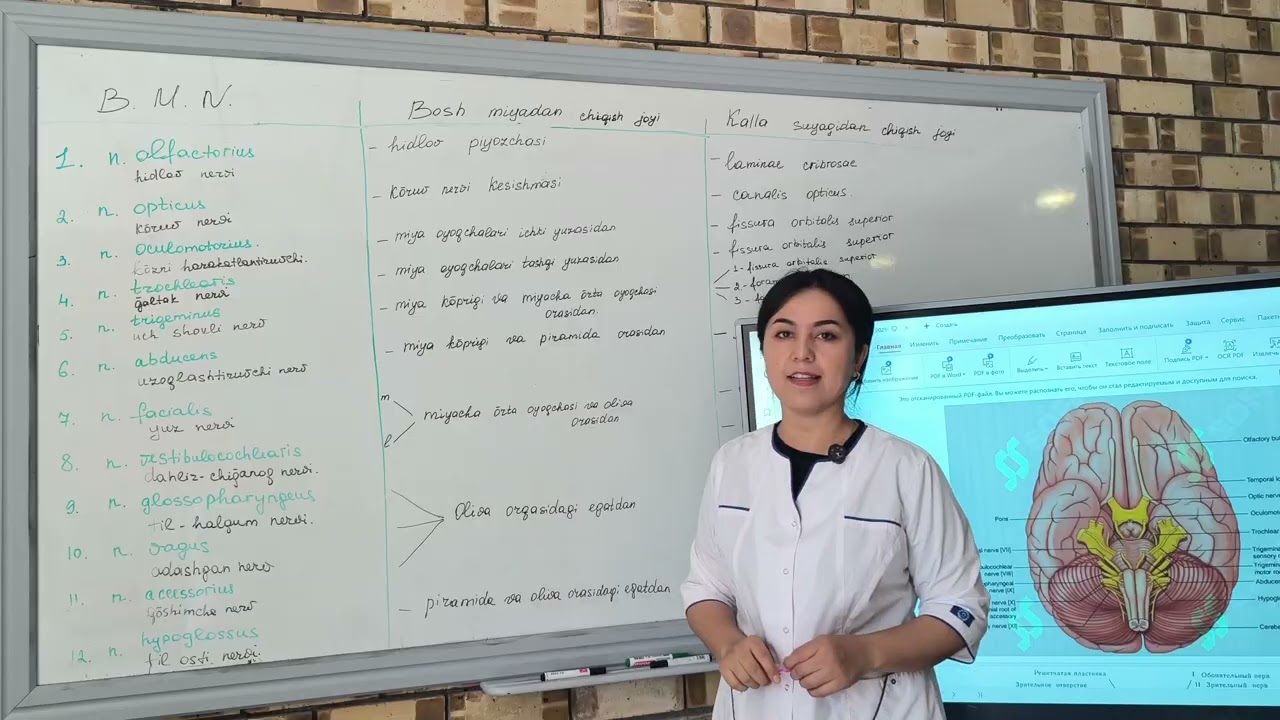 B. M. N.
Bosh miyadan chiqish joyi
Kalla suyagidan chiqish joyi
1. n. olfactorius
hidlov nervi
2. n. opticus
kōruv nervi
3. n. oculomotorius.
kōzni harakatlantiruvchi.
4. n. trochlearis
ḡaltak nervi
5. n. trigeminus
uch shoxli nerv
6. n. abducens
uzoqlashtiruvchi nerv
7. n. facialis
yuz nervi
8. n. vestibulocochlearis
dahliz-chiḡanoq nervi.
9. n. glossopharyngeus
til-halqum nervi.
10. n. vagus
adashgan nerv
11. n. accessorius
qōshimcha nerv
12. n. hypoglossus
til osti nervi.
- hidlov piyozchasi
- kōruv nervi kesishmasi
- miya oyoqchalari ichki yuzasidan
- miya oyoqchalari tashqi yuzasidan
- miya kōprigi va miyacha ōrta oyoqchasi
orasidan.
- miya kōprigi va piramida orasidan
m
l
miyacha ōrta oyoqchasi va oliva
orasidan
Oliva orqasidagi egatdan
- piramida va oliva orasidagi egatdan
- laminae cribrosae
- canalis opticus
- fissura orbitalis superior
- fissura orbitalis superior
1- fissura orbitalis superior
2-
3-
Создать
Главная Изменить Примечание Преобразовать Страница Заполнить и подписать Защита Сервис
PDF в Word PDF в фото Выделить Вставить текст Текстовое поле Подписать PDF OCR PDF
Это отсканированный PDF-файл. Вы можете распознать его, чтобы он стал редактируемым и доступным для поиска.
Olfactory
Temporal
Optic
Pons
Trochlear
nerve [VII]
nerve [VIII]
nerve [IX]
nerve [X]
accessory
nerve [XI]
sensory
motor
Решетчатая пластинка
Зрительное отверстие
I Обонятельный нерв
II Зрительный нерв